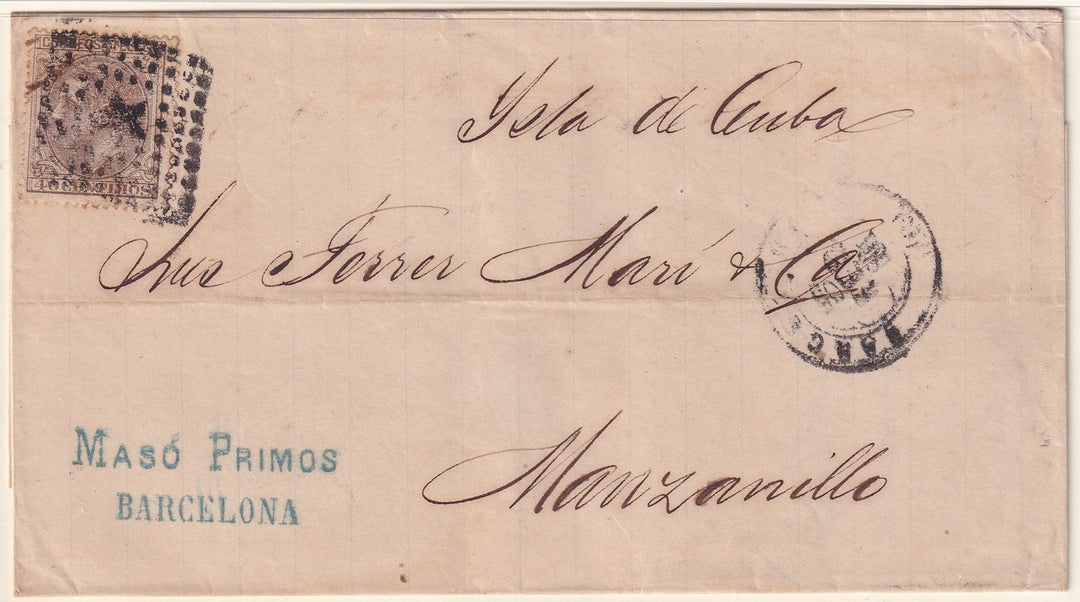 40 CENTIMOS
Isla de Cuba
Luis Ferrer Marí & Ca
Manzanillo
MASÓ PRIMOS
BARCELONA